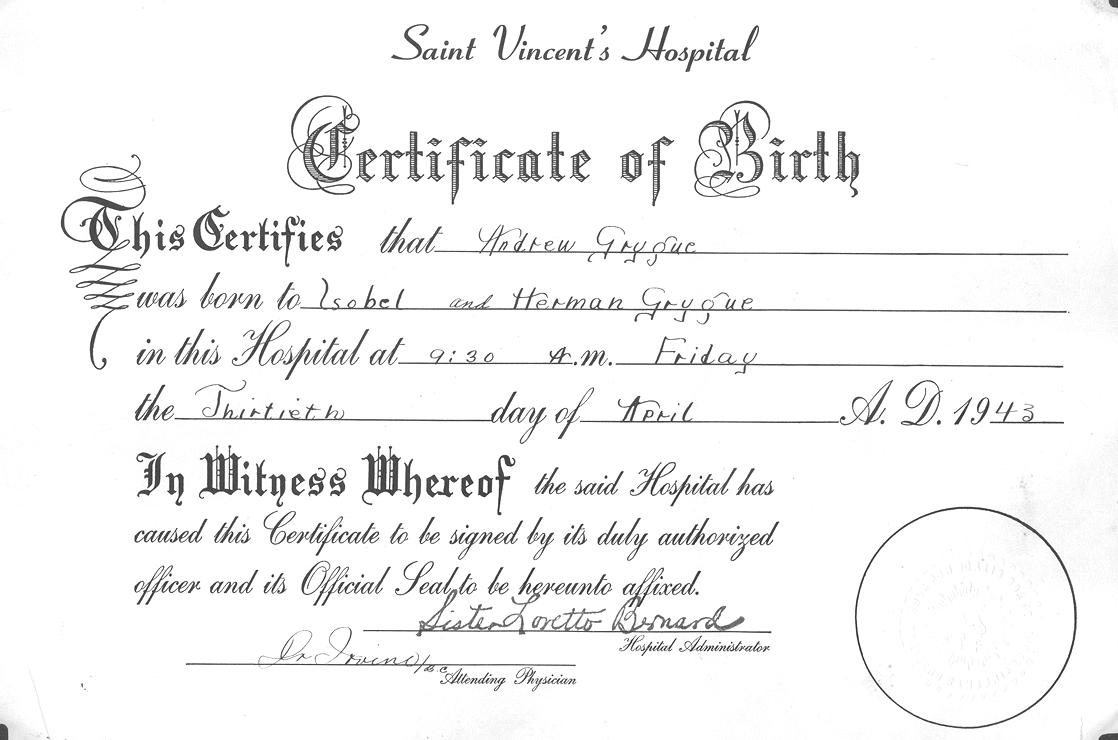 Saint Vincent's Hospital
Certificate of Birth
This Certifies that Andrew Grygue
was born to Isobel and Herman Grygue
in this Hospital at 9:30 A.m. Friday
the Thirtieth day of April A. D. 1943
In Witness Whereof the said Hospital has
caused this Certificate to be signed by its duly authorized
officer and its Official Seal to be hereunto affixed.
Sister Loretto Bernard
Hospital Administrator
Dr Irving
Attending Physician